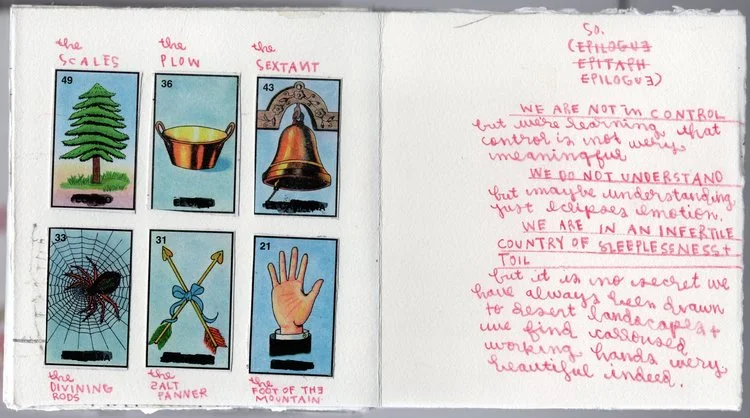 the
SCALES
the
PLOW
the
SEXTANT
49
36
43
33
31
21
the
DIVINING
RODS
the
SALT
PANNER
the
FOOT OF THE
MOUNTAIN
SO.
(EPILOGUE
EPITAPH
EPILOGUE)
WE ARE NOT IN CONTROL
but we're learning that
control is not very
meaningful
WE DO NOT UNDERSTAND
but maybe understanding
just eclipses emotion.
WE ARE IN AN INFERTILE
COUNTRY OF SLEEPLESENESS +
TOIL
but it is no secret we
have always been drawn
to desert landscapes +
we find calloused
working hands very
beautiful indeed.